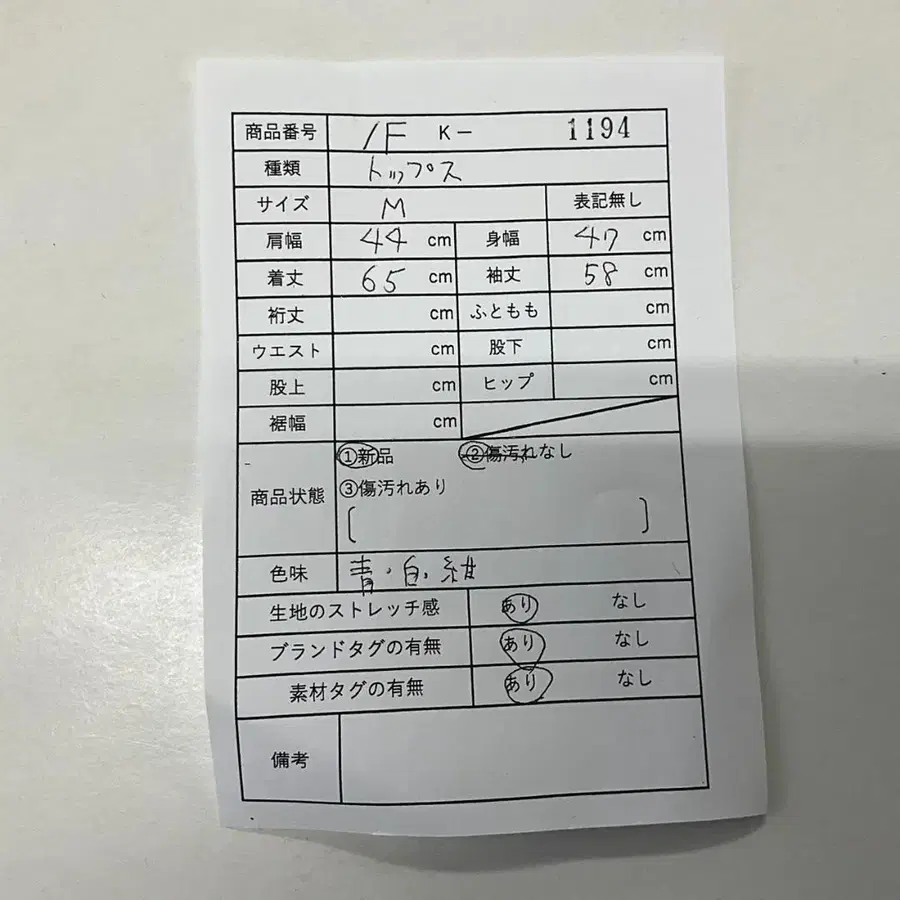 商品番号 1F K- 1194
種類 トップス
サイズ M 表記無し
肩幅 44 cm 身幅 47 cm
着丈 65 cm 袖丈 58 cm
裄丈 cm ふともも cm
ウエスト cm 股下 cm
股上 cm ヒップ cm
裾幅 cm
商品状態 ①新品 ②傷汚れなし
③傷汚れあり
[ ]
色味 青・白・紺
生地のストレッチ感 あり なし
ブランドタグの有無 あり なし
素材タグの有無 あり なし
備考